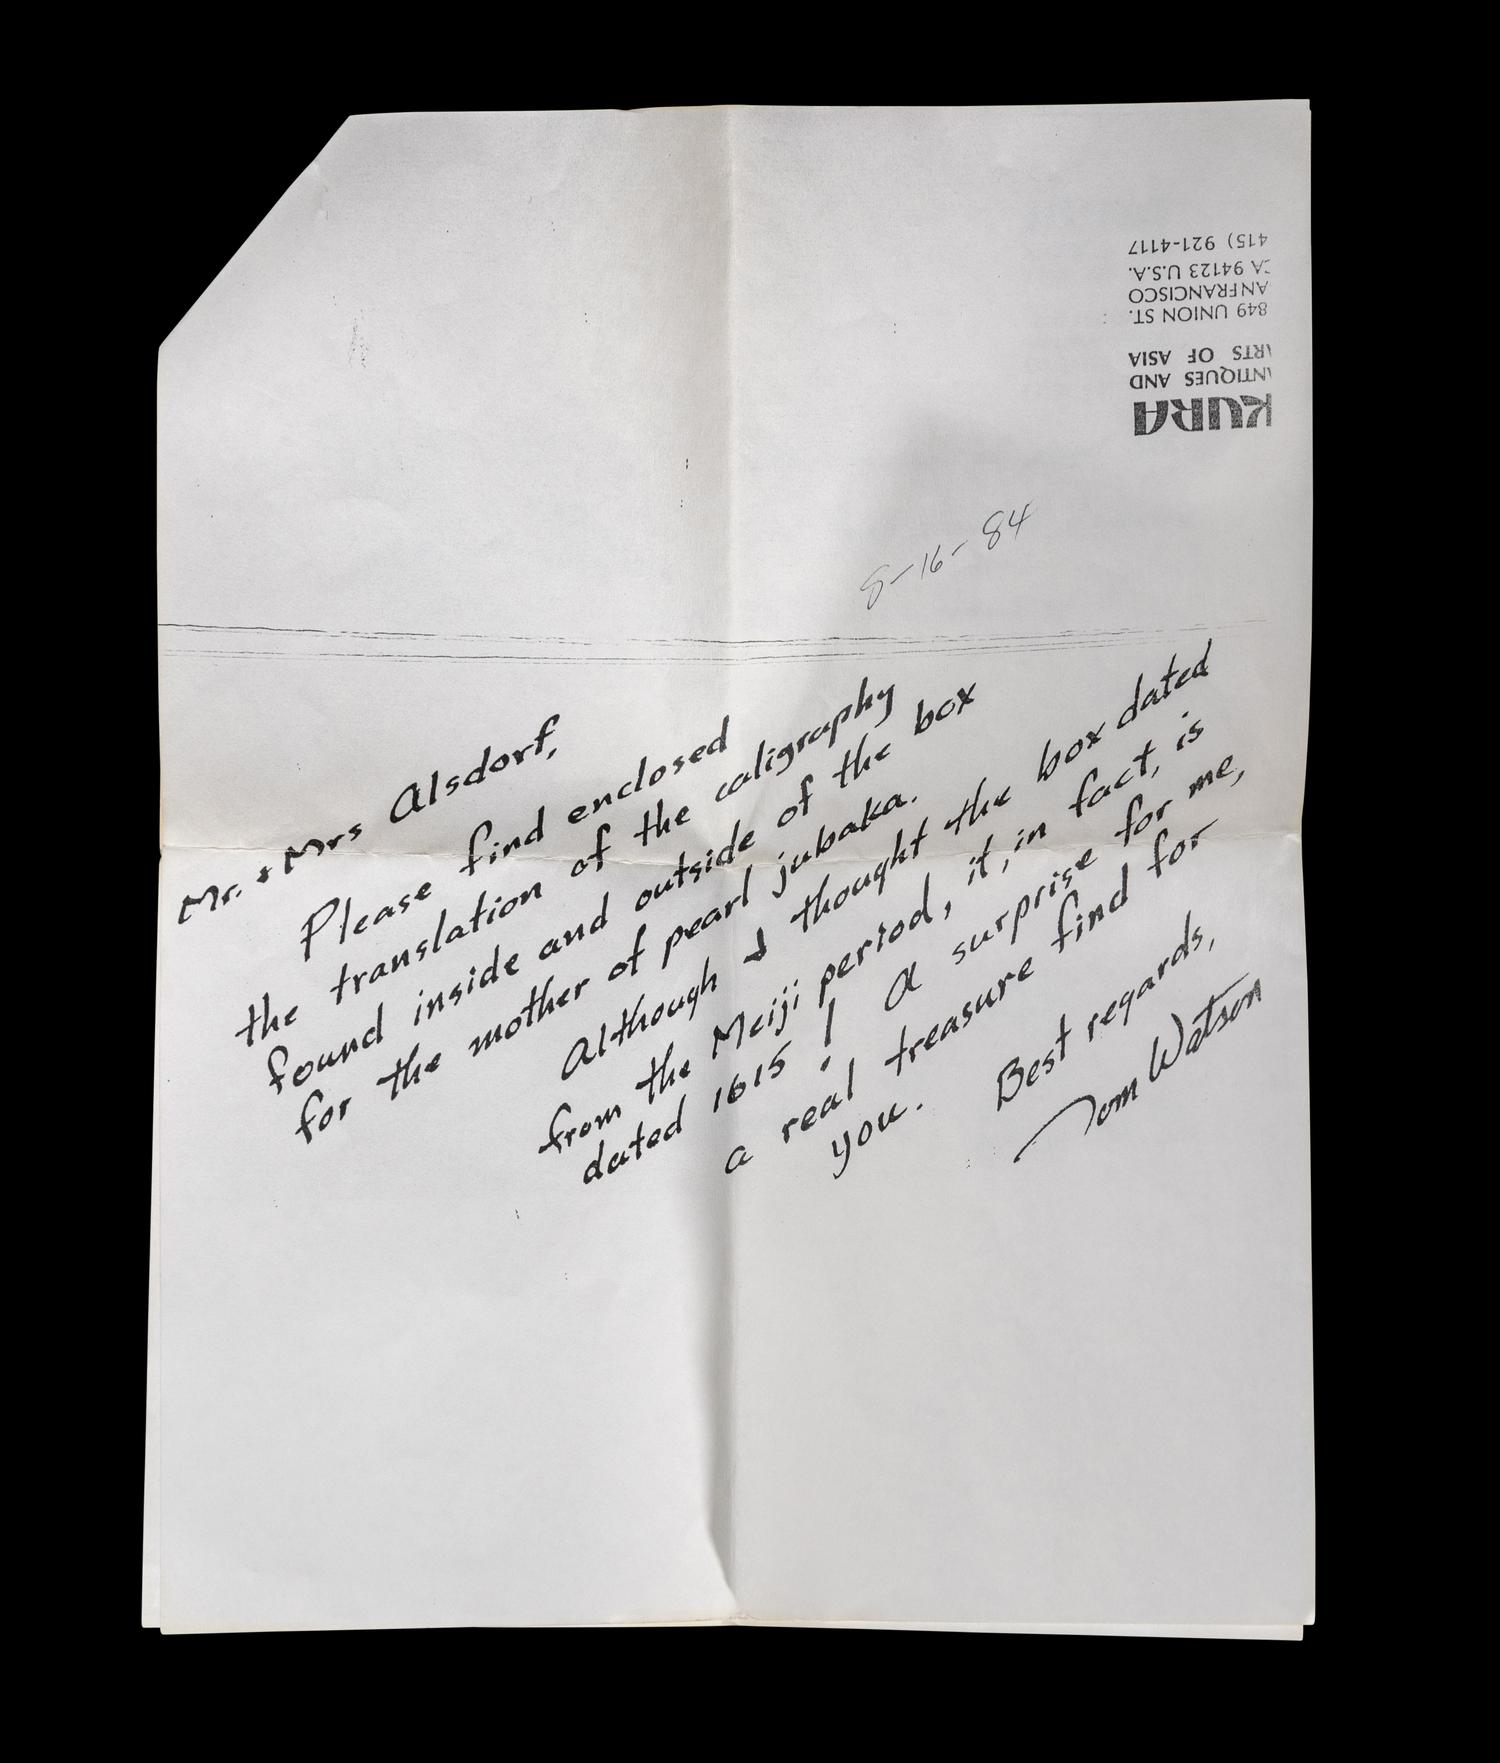 KURA
ANTIQUES AND
ARTS OF ASIA
849 UNION ST.
AN FRANCISCO
CA 94123 U.S.A.
415) 921-4117
8-16-84
Mr. & Mrs Alsdorf,
Please find enclosed
the translation of the caligraphy
found inside and outside of the box
for the mother of pearl jubaka.
Although I thought the box dated
from the Meiji period, it, in fact, is
dated 1615! A surprise for me,
a real treasure find for
you.
Best regards,
Tom Watson